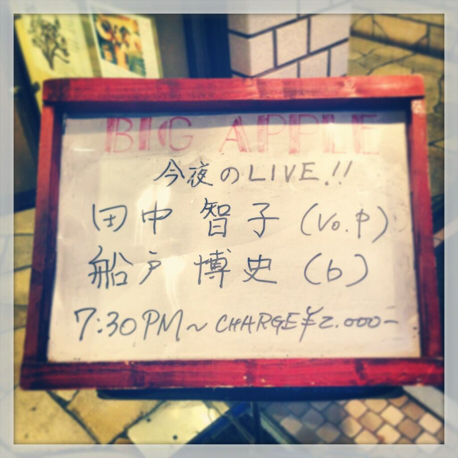 BIG APPLE
今夜のLIVE!!
田中 智子 (Vo.P)
船戸 博史 (b)
7:30PM~ CHARGE ¥2.000-